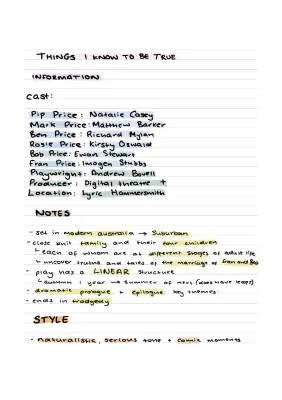 THINGS I KNOW TO BE TRUE
INFORMATION
cast:
Pip Price: Natalie Casey
Mark Price: Matthew Barker
Ben Price: Richard Mylan
Rosie Price: Kirsty Oswald
Bob Price: Ewan Stewart
Fran Price: Imogen Stubbs
Playwright: Andrew Bovell
Producer: Digital theatre +
Location: Lyric Hammersmith
NOTES
- set in modern australia → Suburban
- close knit family and their four children
↳ each of whom are at different stages of adult life
↳ uncover truths and tales of the marriage of Fran and Bob
- play has a LINEAR structure
↳ 1 year → Summer of next (does have leaps)
- dramatic prologue + epilogue key themes
- ends in tradgedy
STYLE
- naturalistic, serious tone + comic moments